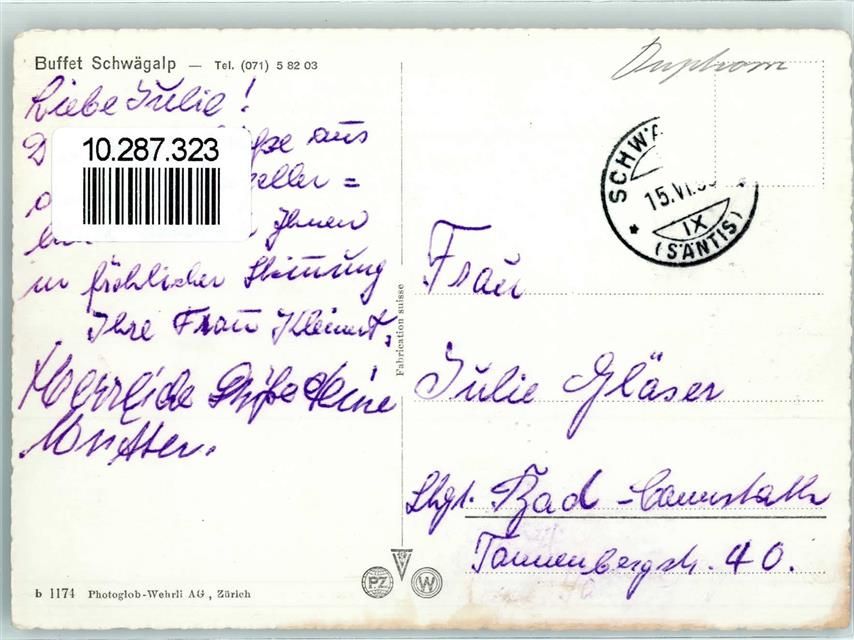 Buffet Schwägalp — Tel. (071) 5 82 03
Liebe Julie!
aus
10.287.323
Ihnen
in fröhlicher Stimmung
Ihre Frau Kleinert.
Herrliche Grüße Deine
Mutter.
SCHWÄ
15.VI.
IX
(SÄNTIS)
Frau
Julie Gläser
Stgt. Bad-Cannstatt
Tannenbergstr. 40.
Fabrication suisse
PZ W
b 1174 Photoglob-Wehrli AG, Zürich